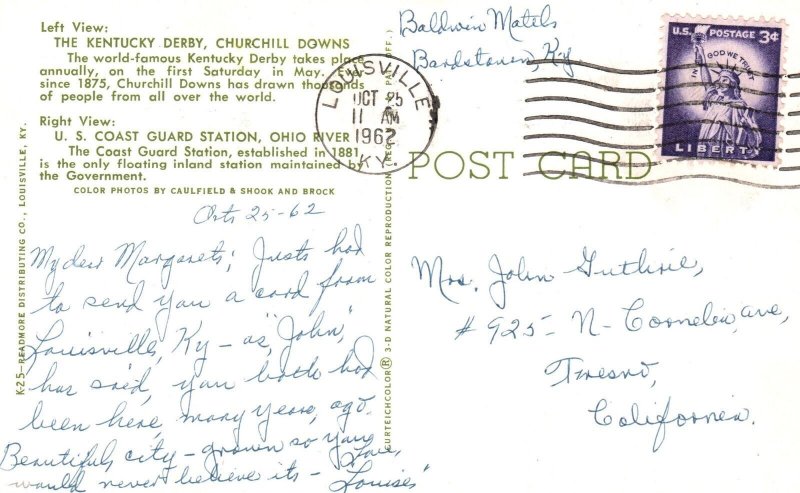 Left View:
THE KENTUCKY DERBY, CHURCHILL DOWNS
The world-famous Kentucky Derby takes place
annually, on the first Saturday in May.
since 1875, Churchill Downs has drawn thousands
of people from all over the world.
Right View:
U. S. COAST GUARD STATION, OHIO RIVER
The Coast Guard Station, established in 1881,
is the only floating inland station maintained by
the Government.
COLOR PHOTOS BY CAULFIELD & SHOOK AND BROCK
K-25—READMORE DISTRIBUTING CO., LOUISVILLE, KY.
CURTEICHCOLOR® 3-D NATURAL COLOR REPRODUCTION (REG. U.S. PAT. OFF.)
Baldwin Motels
Bardstown, Ky.
LOUISVILLE
OCT 25
11 AM
1962
KY.
U.S. POSTAGE 3¢
IN GOD WE TRUST
LIBERTY
POST CARD
Octs 25-62
My dear Margarets; Justs had
to send you a card from
Louisville, Ky – as, "John",
has said, you both had
been here, many years, ago.
Beautiful, city – grown so you
would never believe its –
Love,
Louises"
Mrs. John Guthrie,
# 925- N- Cornelia, ave,
Fresno,
California.